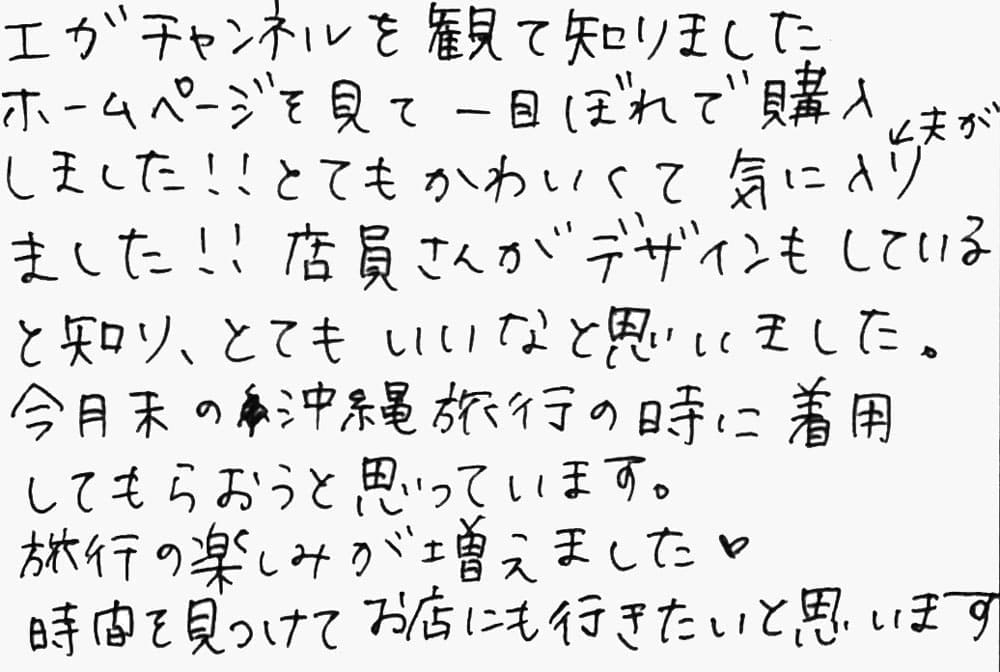 エガチャンネルを観て知りました
ホームページを見て一目ぼれで購入
↙夫が
しました!!とてもかわいくて気に入り
ました!!店員さんがデザインもしている
と知り、とてもいいなと思いました。
今月末の沖縄旅行の時に着用
してもらおうと思っています。
旅行の楽しみが増えました♥
時間を見つけてお店にも行きたいと思います